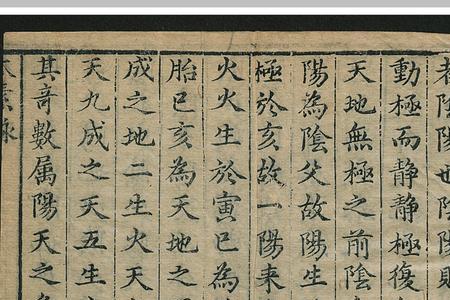 者陰陽也陰陽
動極而靜靜極復
天地無極之前陰
陽為陰父故陽生
極於亥故一陽来
火火生於寅巳為
胎已亥為天地之
成之地二生火天
天九成之天五生
其竒數属陽天之